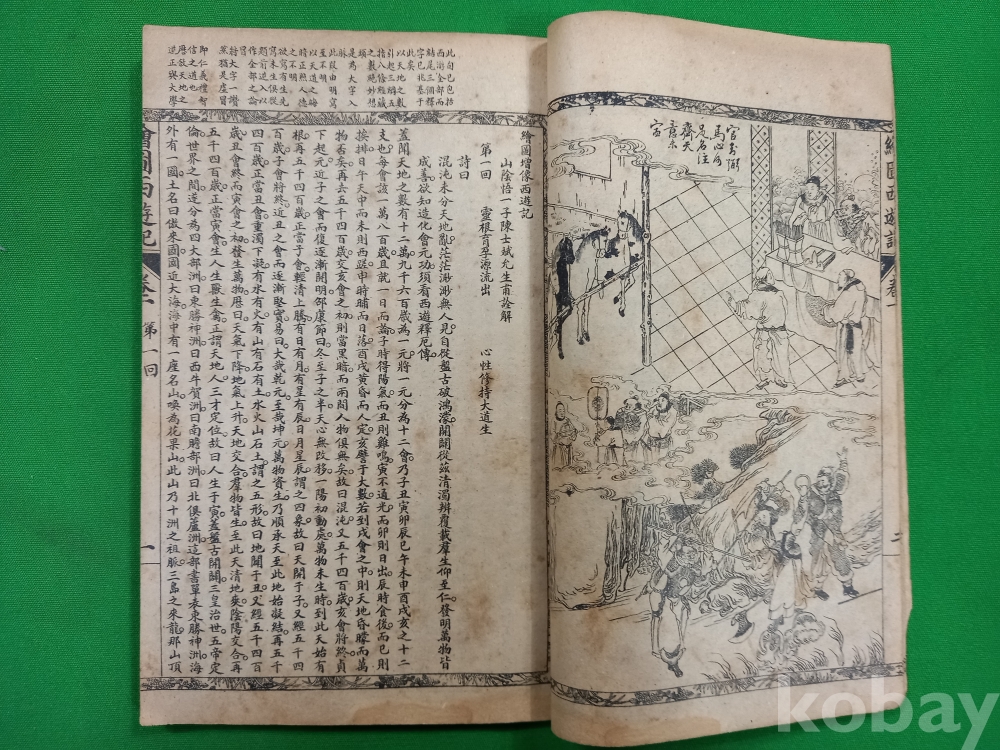 官封弼
馬心何
足名注
齊天
意未
寧
繪圖西遊記 卷一
二
此句已包括
西游全部而
結尾三個釋
此矣
以天地之數
引起三藏五
之數
是為大字入
脉
此段由明寫
至不明
以天道之晦
時正照人德
之不明
欲寫有生先
寫未生俱從
題前追入以
作全部之論
冐
持大字一
即仁義禮智
信之道也
歷叙天地之
逆正與大學
繪圖增像西遊記
山陰悟一子陳士斌允生甫詮解
第一回 靈根育孕源流出 心性修持大道生
詩曰
混沌未分天地亂茫茫渺渺無人見自從盤古破鴻濛開闢從茲清濁辨覆載羣生仰至仁發明萬物皆
成善欲知造化會元功須看西遊釋厄傳
蓋聞天地之數有十二萬九千六百歲為一元將一元分為十二會乃子丑寅卯辰巳午未申酉戌亥之十二
支也每會該一萬八百歲且就一日而論子時得陽氣而丑則雞鳴寅不通光而卯則日出辰時食後而巳則
挨排日午天中而未則西蹉申時晡而日落酉戌黃昏而人定亥譬于大數若到戌會之中則天地昏曚而萬
物否矣再去五千四百歲交亥會之初則當黑暗而兩間人物俱無矣故曰混沌又五千四百歲亥會將終貞
下起元近子之會而復逐漸開明邵康節曰冬至子之半天心無改移一陽初動處萬物未生時到此天始有
根再五千四百歲正當子會輕清上騰有日有月有星有辰日月星辰謂之四象故曰天開于子又經五千四
百歲子會將終近丑之會而逐漸堅實易曰大哉乾元至哉坤元萬物資生乃順承天至此地始凝結再五千
四百歲正當丑會重濁下凝有水有火有山有石有土水火山石土謂之五形故曰地闢于丑又經五千四百
歲丑會終而寅會之初發生萬物曆曰天氣下降地氣上升天地交合羣物皆生至此天清地爽陰陽交合再
五千四百歲正當寅會生人生獸生禽正謂天地人三才定位故曰人生于寅蓋盤古開闢三皇治世五帝定
倫世界之間遂分為四大部洲曰東勝神洲曰西牛賀洲曰南贍部洲曰北俱蘆洲這部書單表東勝神洲海
外有一國土名曰傲來國國近大海海中有一座名山喚為花果山此山乃十洲之祖脈三島之來龍那山頂
繪圖西遊記 卷一 第一回
一
kobay